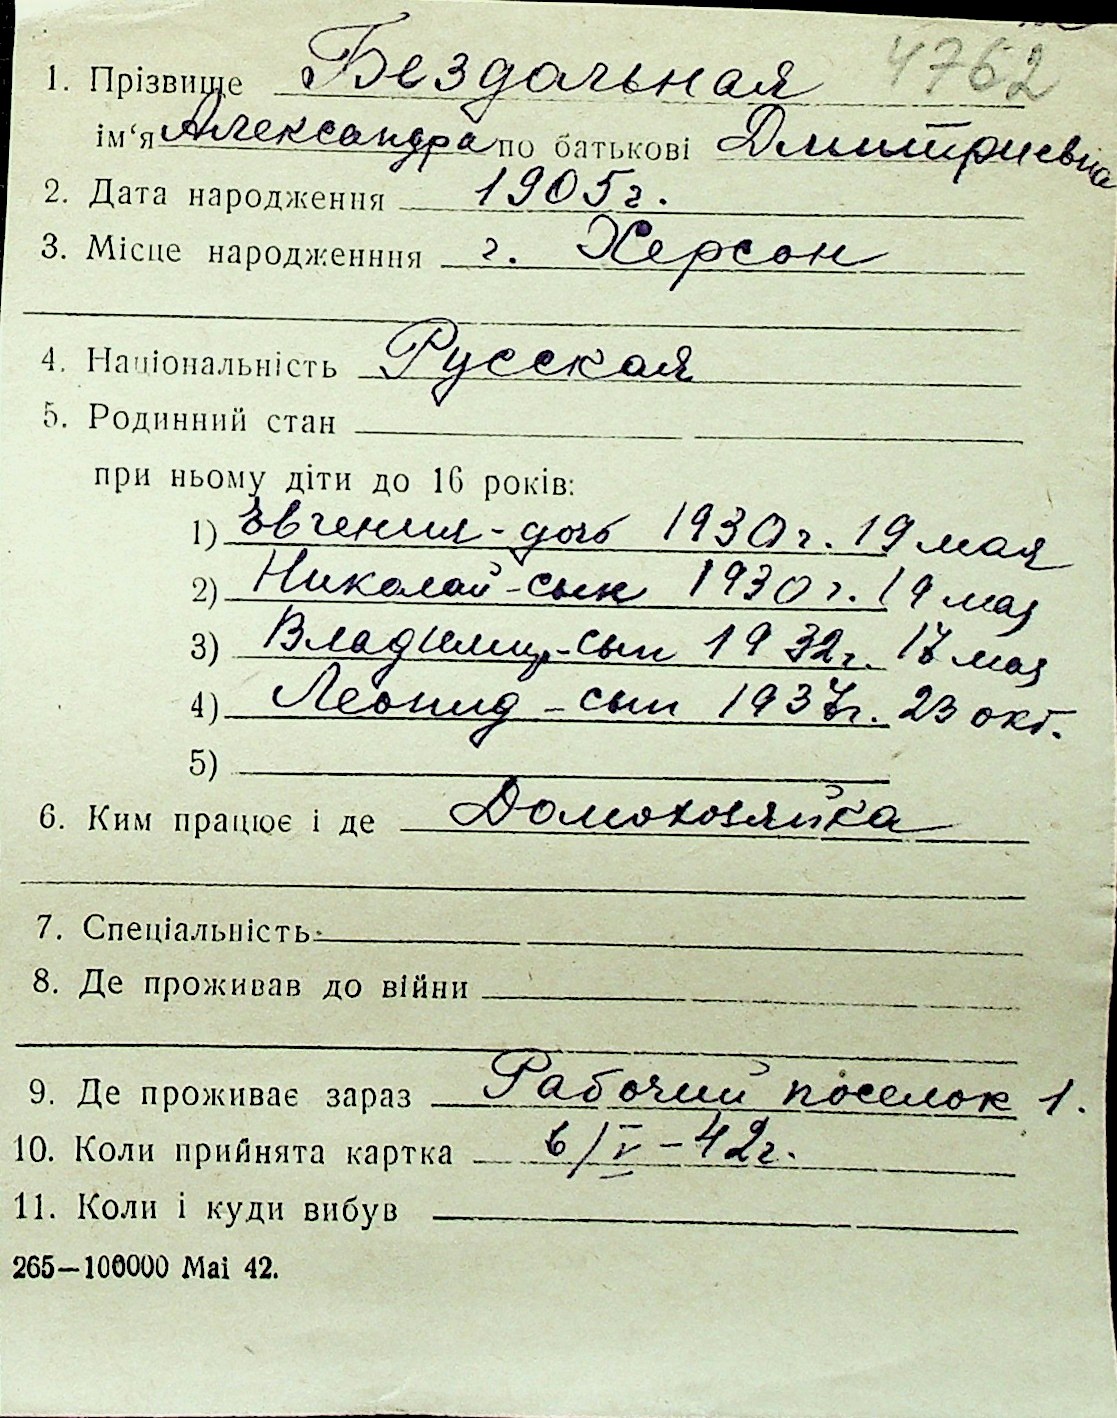 4762
1. Прізвище Бездольная
ім‘я Александра по батькові Дмитриевна
2. Дата народження 1905 г.
3. Місце народженння г. Херсон
4. Національність Русская
5. Родинний стан
при ньому діти до 16 років:
1) Евгения - дочь 1930 г. 19 мая
2) Николай - сын 1930 г. 19 мая
3) Владимир - сын 1932 г. 17 мая
4) Леонид - сын 1937 г. 23 окт.
5)
6. Ким працює і де Домохозяйка
7. Спеціальність
8. Де проживав до війни
9. Де проживає зараз Рабочий поселок 1.
10. Коли прийнята картка 6/V - 42 г.
11. Коли і куди вибув
265—100000 Mai 42.